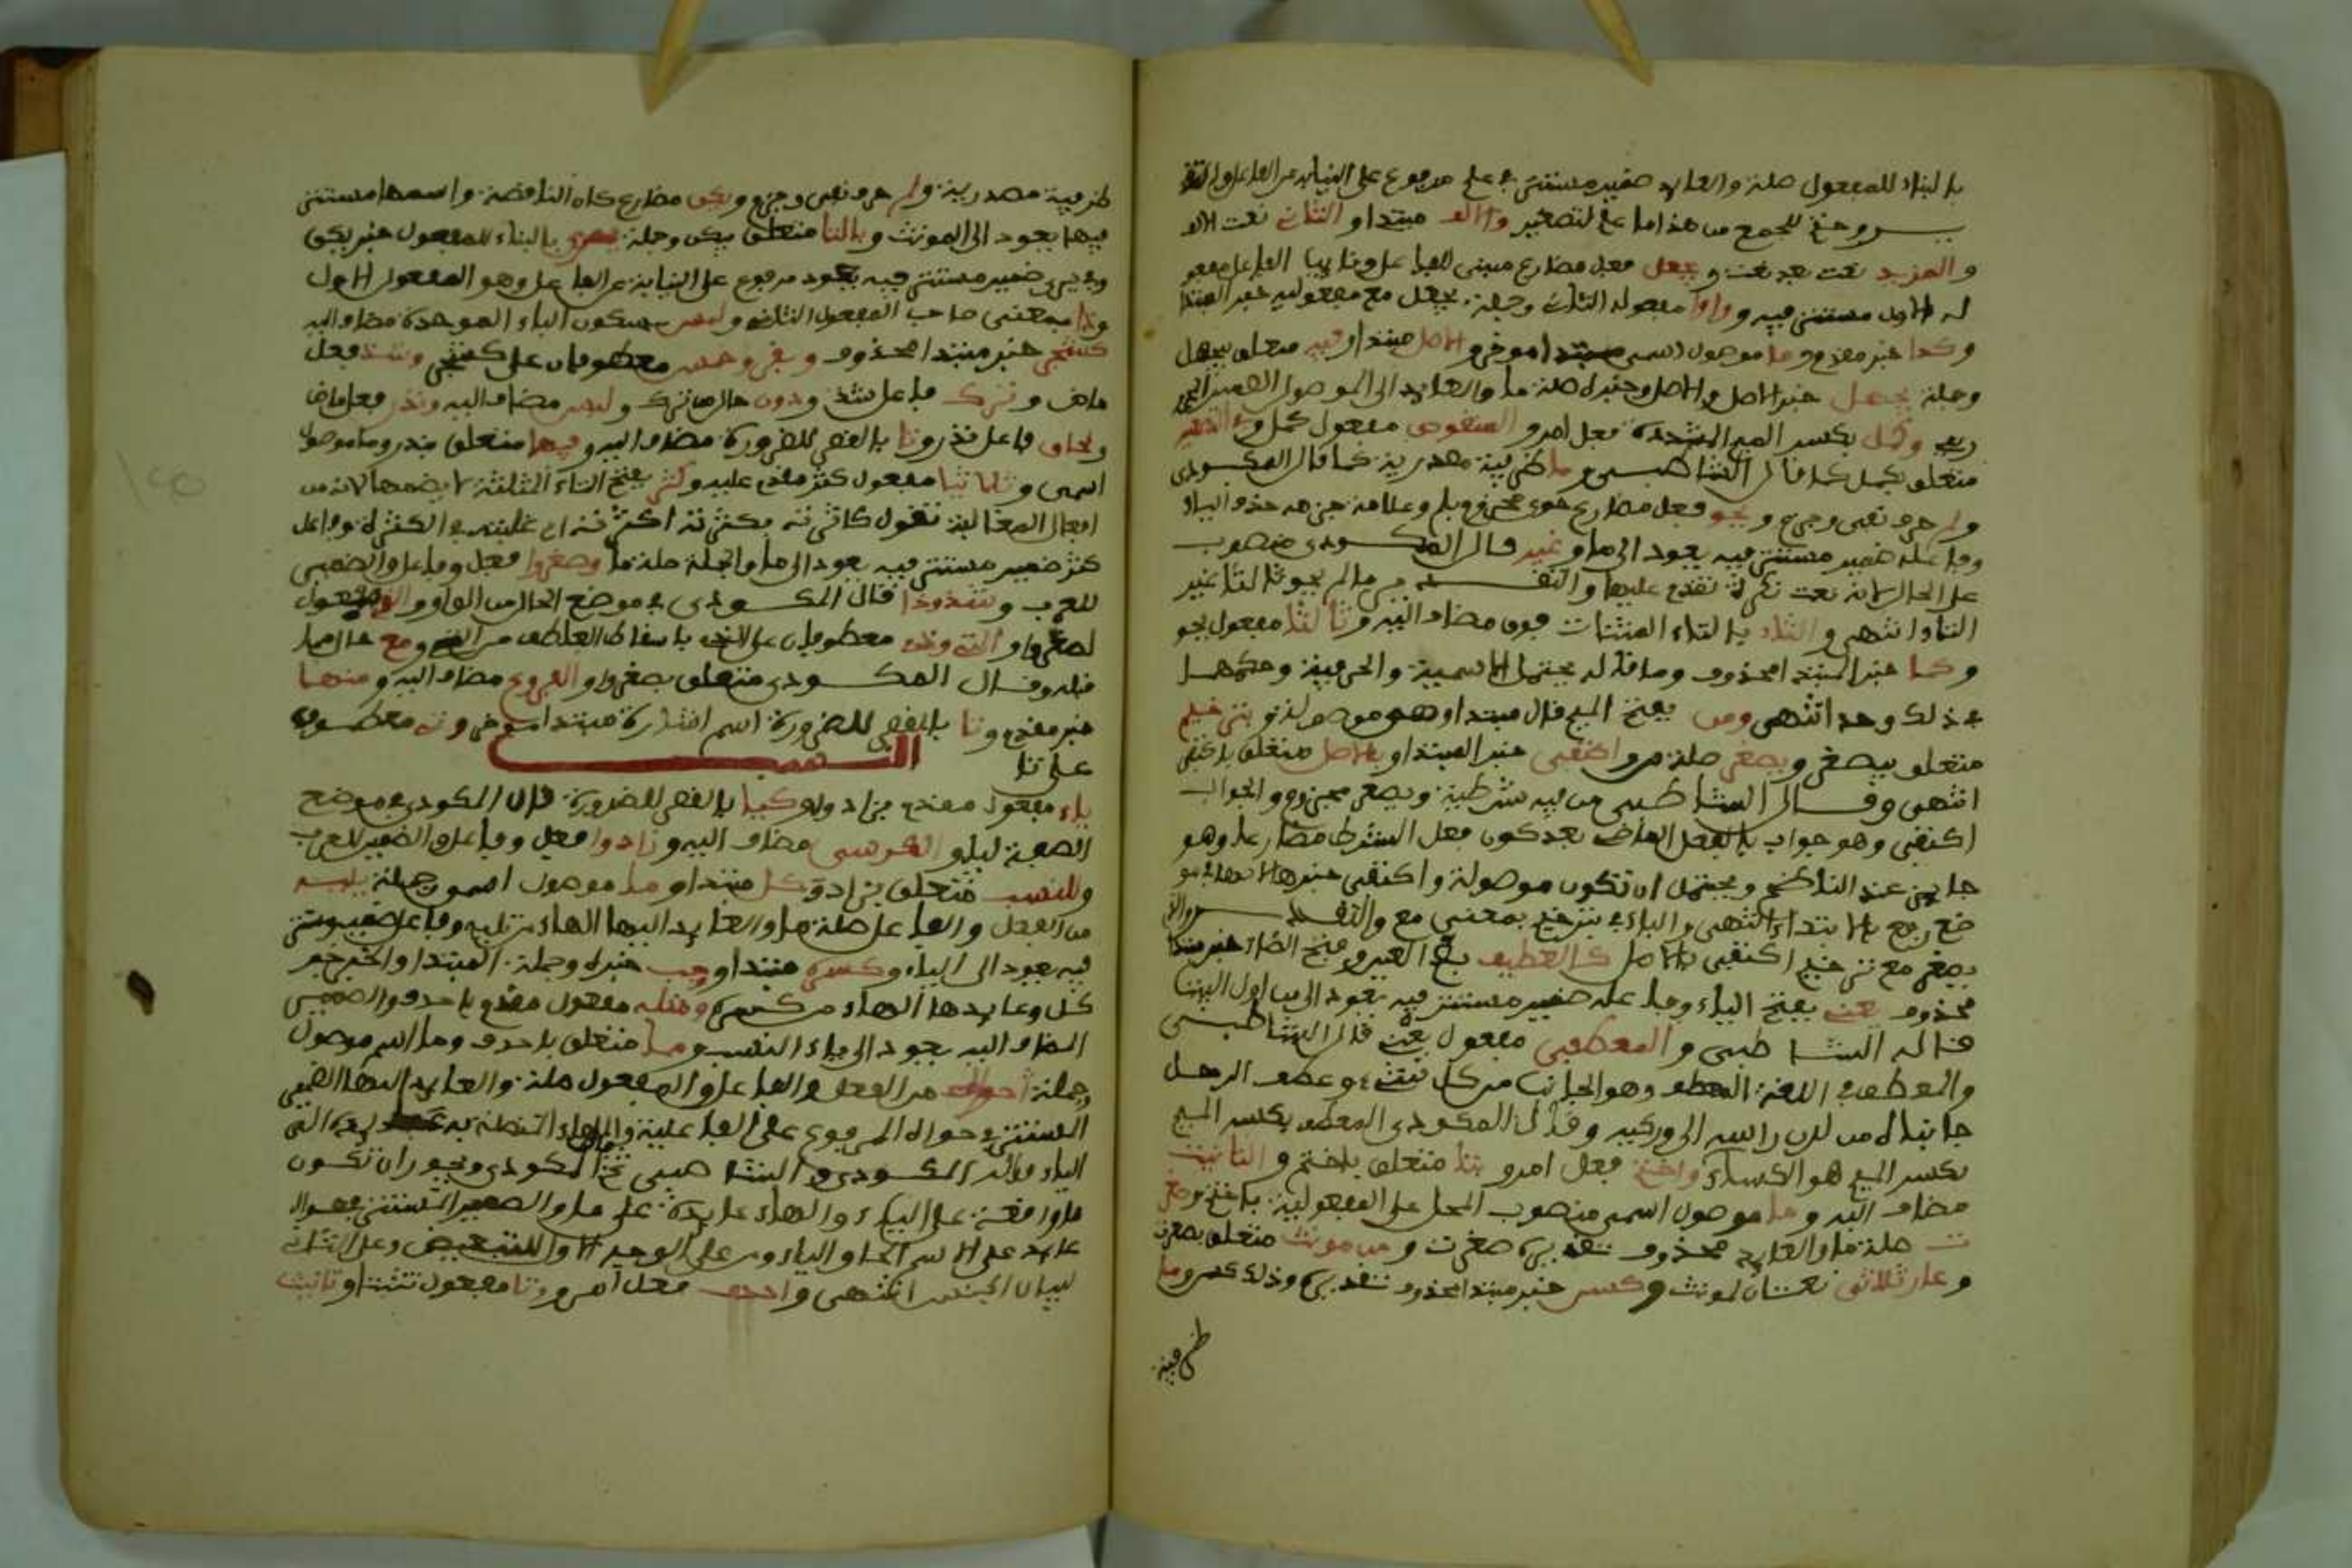 بالبناء للمفعول صلة والعايد ضمير مستتر في علم مرفوع على النيابة عن الفاعل والتقد
يــــر وحتم للجمع من هذا ما علم لتصغير والالف مبتدا والثاني نعت الالف
والمزيد نعت بعد نعت ويجعل فعل مضارع مبني للفاعل ونايب الفاعل مفعو
له الاول مستتر فيه وواوا مفعوله الثاني وجملة يجعل مع مفعوليه خبر المبتدا
وكذا خبر مقدم وما موصول اسمي مبتدا موخر والاصل مبتدا وفيه متعلق بيجهل
وجملة يجهل خبر الاصل والاصل وخبره صلة ما والعايد الى الموصول الضمير المجر
ور في وكمل بكسر الميم المشددة فعل امر والمنقوص مفعول كمل وفي التصغير
متعلق بكمل كما قال الشاطبي وما ظرفية مصدرية كما قال المكودي
ولم حرف نفي وجزم ويحو فعل مضارع حوى مجزوم بلم وعلامة جزمه حذف الياء
وفاعله ضمير مستتر فيه يعود الى ما وغير قال المكودي منصوب
على الحال لانه نعت نكرة تقدم عليها والتقديـــر ما لم يحو ثالثا غير
التاء انتهى والتاء بالتاء المثناة فوق مضاف اليه وثالثا مفعول يحو
وكما خبر المبتدا محذوف وما قاله يحتمل الاسمية والحرفية وحكمها
في ذلك وحد انتهى ومن بفتح الميم قال مبتدا وهو موصولة وبترخيم
متعلق بيصغر ويصغر صلة من واكتفى خبر المبتدا وبالاصل متعلق باكتفى
انتهى وقـــال الشاطبي من فيه شرطية ويصغر مجزوم والجواب
اكتفى وهو جواب بالفعل الماضي بعد كون فعل الشرط مضارعا وهو
جايز عند الناظم ويحتمل ان تكون موصولة واكتفى خبرها لانها في مو
ضع رفع بالابتداء انتهى والباء في بترخيم بمعنى مع والتقديـــر والذي
يصغر مع ترخيم اكتفى بالاصل كالعطيف بضم العين وفتح الطاء خبر مبتدا
محذوف يعني بفتح الياء وفاعله ضمير مستتر فيه يعود الى من اول البيت
قاله الشاطبي والمعطفى مفعول يعني قال الشاطبي
والعطف في اللغة العطف وهو الجانب من كل شيء وعطف الرجل
جانباه من لدن راسه الى وركيه وقال المكودي المعطف بكسر الميم
بكسر الميم هو الكساء واختم فعل امر وبتا متعلق باختم والتانيث
مضاف اليه وما موصول اسمي منصوب المحل على المفعولية باختم وصغر
ت صلة ما والعايد محذوف تقديره صغرت ومن مونث متعلق بصغرت
وعار ثلاثي نعتان لمونث وكسن خبر مبتدا محذوف تقديره وذلك كسن وما
ظرفية
ظرفية مصدرية ولم حرف نفي وجزم ويكن مضارع كان الناقصة واسمها مستتر
فيها يعود الى المونث وبالتا متعلق بيكن وجملة يرى بالبناء للمفعول خبر يكن
وفي يرى ضمير مستتر فيه يعود مرفوع على النيابة عن الفاعل وهو المفعول الاول
وذا بمعنى صاحب المفعول الثاني ولبس بسكون الباء الموحدة مضاف اليه
كشجر خبر مبتدا محذوف وبقر وخمس معطوفان على كشجر وشذ فعل
ماض وترك فاعل شذ ودون حال من ترك ولبس مضاف اليه وندر فعل ماض
ولحاق فاعل ندر وتا بالقصر للضرورة مضاف اليه وفيما متعلق بندر وما موصول
اسمي وثلاثيا مفعول كثر مقدم عليه وكثر بفتح الثاء المثلثة لا بضمها لانه من
افعال المغالبة تقول كاثرته يكثرته اكثرته اي غلبته في الكثرة وفاعل
كثر ضمير مستتر فيه يعود الى ما والجملة صلة ما وصغروا فعل وفاعل والضمير
للعرب وشذوذا قال المكودي في موضع الحال من الواو والذي مفعول
لصغروا والتي وذي معطوفان على الذي باسقاط العاطف من التي ومع حال مما
قبله وقـــال المكـــودي متعلق بصغروا والفروع مضاف اليه ومنها
خبر مقدم وتا بالقصر للضرورة اسم اشارة مبتدا موخر وتي معطوف
على تا النســـب
ياء مفعول مقدم بزادوا وكيا بالقصر للضرورة قال المكودي في موضع
الصفة لياء والكرسي مضاف اليه وزادوا فعل وفاعل والضمير للعرب
وللنسب متعلق بزادوا وكل مبتدا وما موصول اسمي وجملة تليه
من الفعل والفاعل صلة ما والعايد اليها الهاء من تليه وفاعله ضمير مستتر
فيه يعود الى الياء وكسره مبتدا ووجب خبره وجملة المبتدا والخبر خبر
كل وعايدها الهاء من كسره ومثله مفعول مقدم باحذف والضمير
المضاف اليه يعود الى ياء النسب ومما متعلق باحذف وما اسم موصول
وجملة حواه من الفعل والفاعل والمفعول صلة والعايد اليها الضمير
المستتر في حواه المرفوع على الفاعلية والهاء المتصلة به عايدة الى
الياء قاله المكودي والشاطبي ثم قال المكودي ويجوز ان تكون
ما واقعة على الياء والهاء عايدة على ما والضمير المستتر في حواه
عايد على الاسم الحاوي الياء ومن على الوجه الاول للتبعيض وعلى الثاني
لبيان الجنس انتهى واحذف فعل امر وتا مفعول تثبتا وتانيث